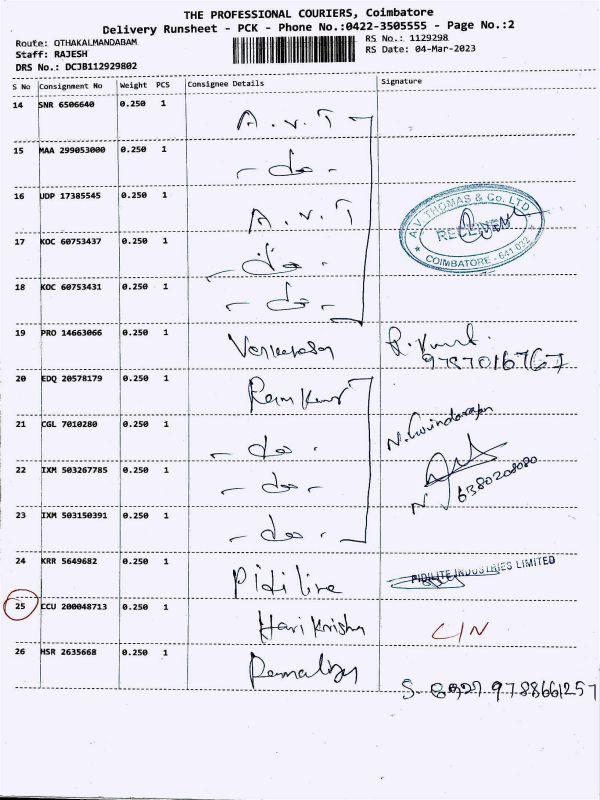 THE PROFESSIONAL COURIERS, Coimbatore
Delivery Runsheet - PCK - Phone No.:0422-3505555 - Page No.:2
Route: OTHAKALMANDABAM
RS No.: 1129298
Staff: RAJESH
RS Date: 04-Mar-2023
DRS No.: DCJB112929802
S No Consignment No Weight PCS Consignee Details Signature
14 SNR 6506640 0.250 1 A.V.T
15 MAA 299053000 0.250 1 - do -
16 UDP 17385545 0.250 1 A.V.T
A.V. THOMAS & Co. LTD.
RECEIVED
COIMBATORE - 641 032
17 KOC 60753437 0.250 1 - do -
18 KOC 60753431 0.250 1 - do -
19 PRO 14663066 0.250 1
9787016767
20 EDQ 20578179 0.250 1 Ram Kumar
21 CGL 7010280 0.250 1 - do - N. Govindarajan
22 IXM 503267785 0.250 1 - do -
6380208080
23 IXM 503150391 0.250 1 - do -
24 KRR 5649682 0.250 1 Pidilite PIDILITE INDUSTRIES LIMITED
25 CCU 200048713 0.250 1 Hari Krishna C/N
26 HSR 2635668 0.250 1 S. 9788661257